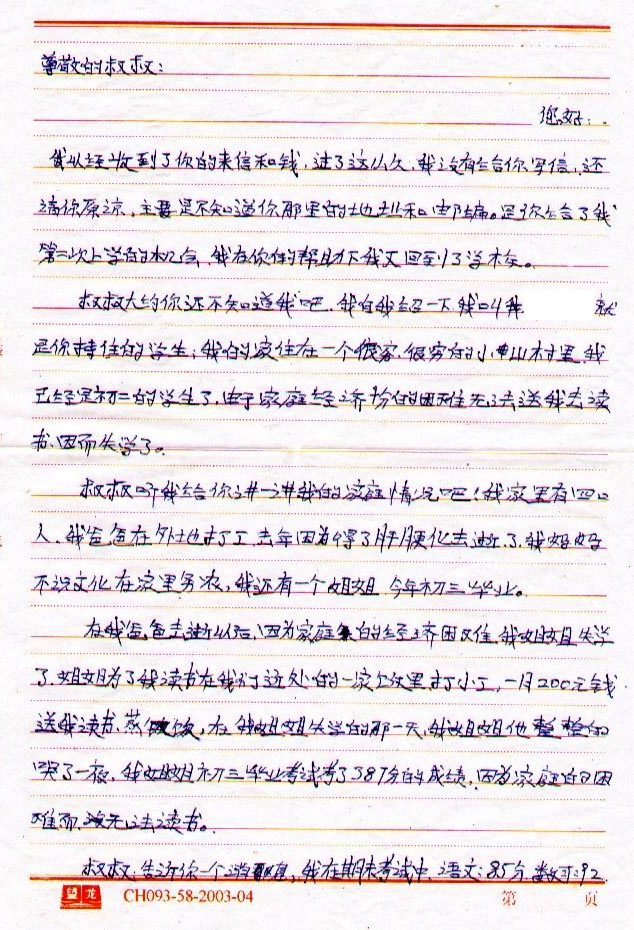 尊敬的叔叔:
您好:.
我以经收到了你的来信和钱,过了这么久,我没有给你写信,还
请你原凉,主要是不知道你那里的地址和邮编。是你给了我
第二次上学的机会,我在你的帮助下我又回到了学校。
叔叔大约你还不知道我吧,我自我绍一下我叫 就
是你持住的学生;我的家住在一个很穷.很穷的小山村里,我
已经是初二的学生了,由于家庭经济的困难无法送我去读
书、因而失学了。
叔叔听我给你讲一讲我的家庭情况吧!我家里有四口
人,我爸爸在外地打工去年因为得了肝硬化去逝了,我妈妈
不识文化在家里务农,我还有一个姐姐 今年初三毕业。
在我爸爸去逝以后,因为家庭的经济困难,我姐姐失学
了,姐姐为了我读书在我们这处的一家里打小工,一月200元钱
送我读书、蒸饭,在我姐姐失学的那一天,我姐姐他整整的
哭了一夜,我姐姐初三毕业考试考了387分的成绩,因为家庭的困
难而无法读书。
叔叔,告诉你一个消息,我在期末考试中、语文:85分、数学:92
望龙 CH093-58-2003-04 第 页